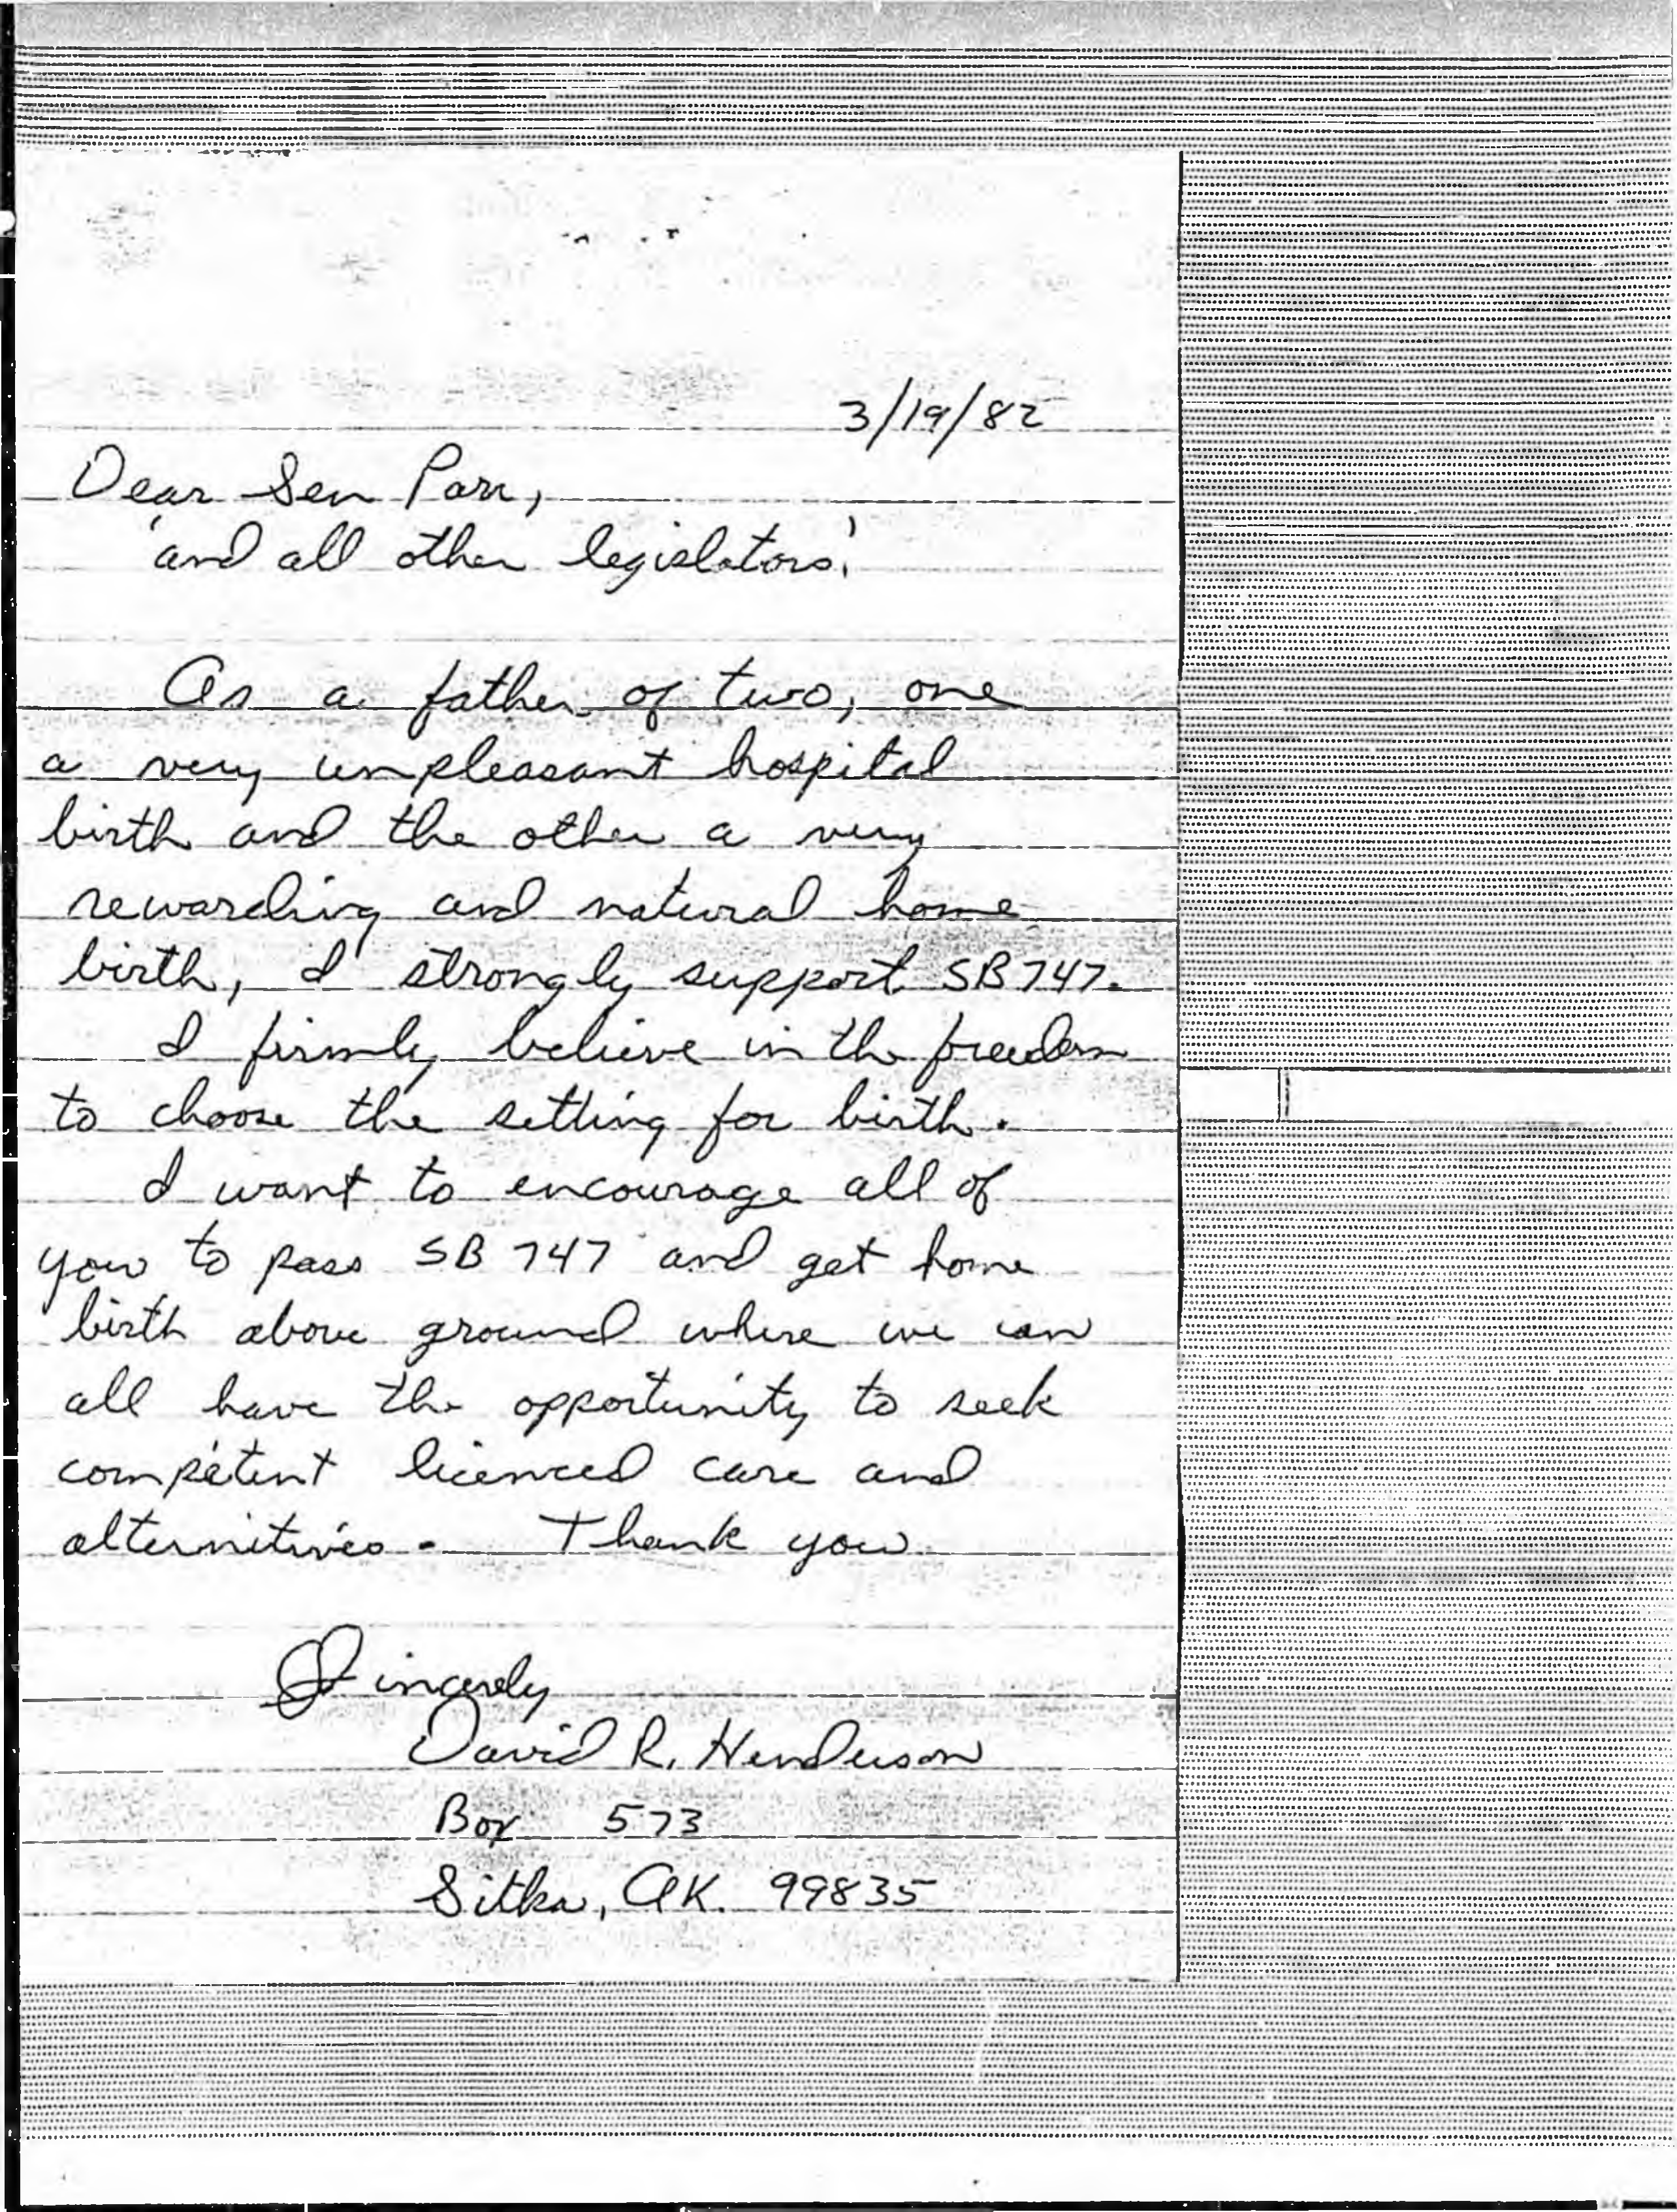 3/19/82
Dear Sen Parr,
'and all other legislators,'
As a father of two, one
a very unpleasant hospital
birth and the other a very
rewarding and natural home
birth, I strongly support SB 747.
I firmly believe in the freedom
to choose the setting for birth.
I want to encourage all of
you to pass SB 747 and get home
birth above ground where we can
all have the opportunity to seek
competent licenced care and
alternitives. Thank you
Sincerely
David R. Henderson
Box 573
Sitka, AK. 99835